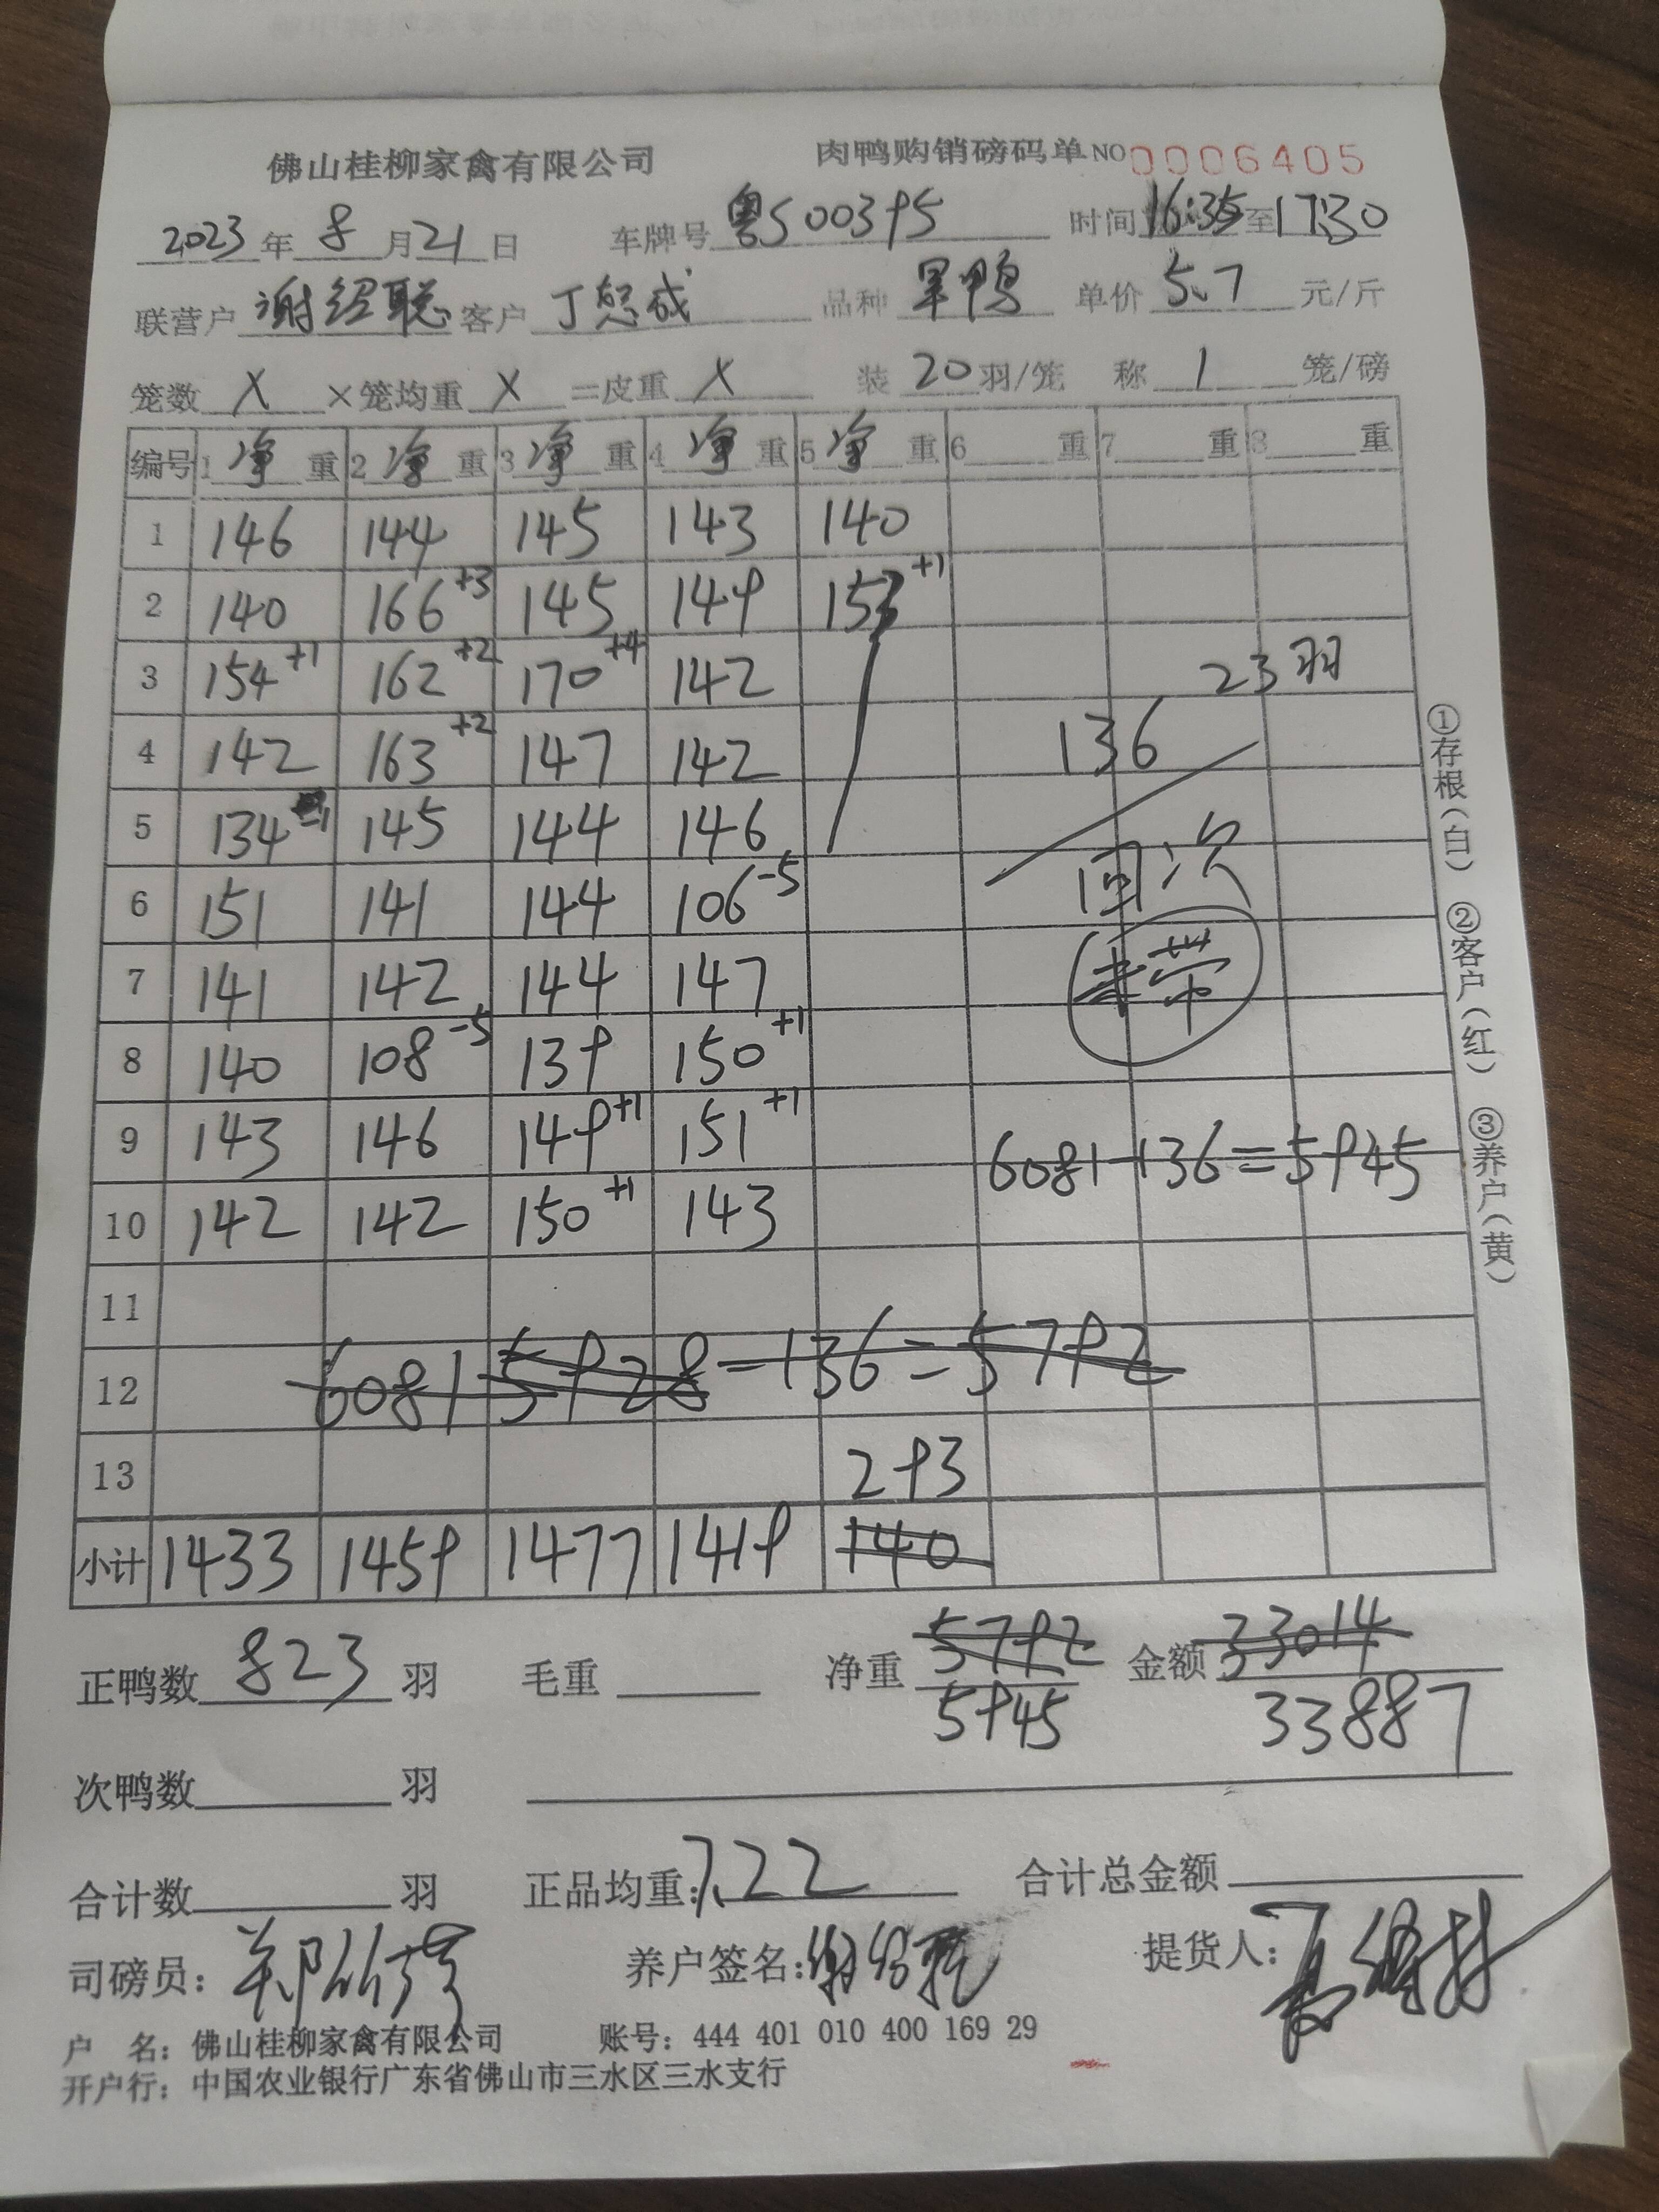 佛山桂柳家禽有限公司 肉鸭购销磅码单 NO 0006405
2023年8月21日 车牌号 粤S00395 时间 16:35至17:30
联营户 谢经聪 客户 丁恕成 品种 旱鸭 单价 5.7 元/斤
笼数 X ×笼均重 X =皮重 X 装 20 羽/笼 称 1 笼/磅
编号 1 净 重 2 净 重 3 净 重 4 净 重 5 净 重 6 重 7 重 8 重
1 146 144 145 143 140
2 140 166+3 145 149 153+1
3 154+1 162+2 170+4 142 23羽
4 142 163+2 147 142 136
5 134-1 145 144 146 回次
6 151 141 144 106-5
7 141 142 144 147 未带
8 140 108-5 139 150+1
9 143 146 149+1 151+1 6081-136=5945
10 142 142 150+1 143
11
12 6081 5928-136=5792
13 293
小计 1433 1459 1477 1419 140
正鸭数 823 羽 毛重 净重 5792 金额 33014
5945 33887
次鸭数 羽
合计数 羽 正品均重: 7.22 合计总金额
司磅员: 养户签名: 提货人:
户 名: 佛山桂柳家禽有限公司 账号: 444 401 010 400 169 29
开户行: 中国农业银行广东省佛山市三水区三水支行
①存根(白) ②客户(红) ③养户(黄)